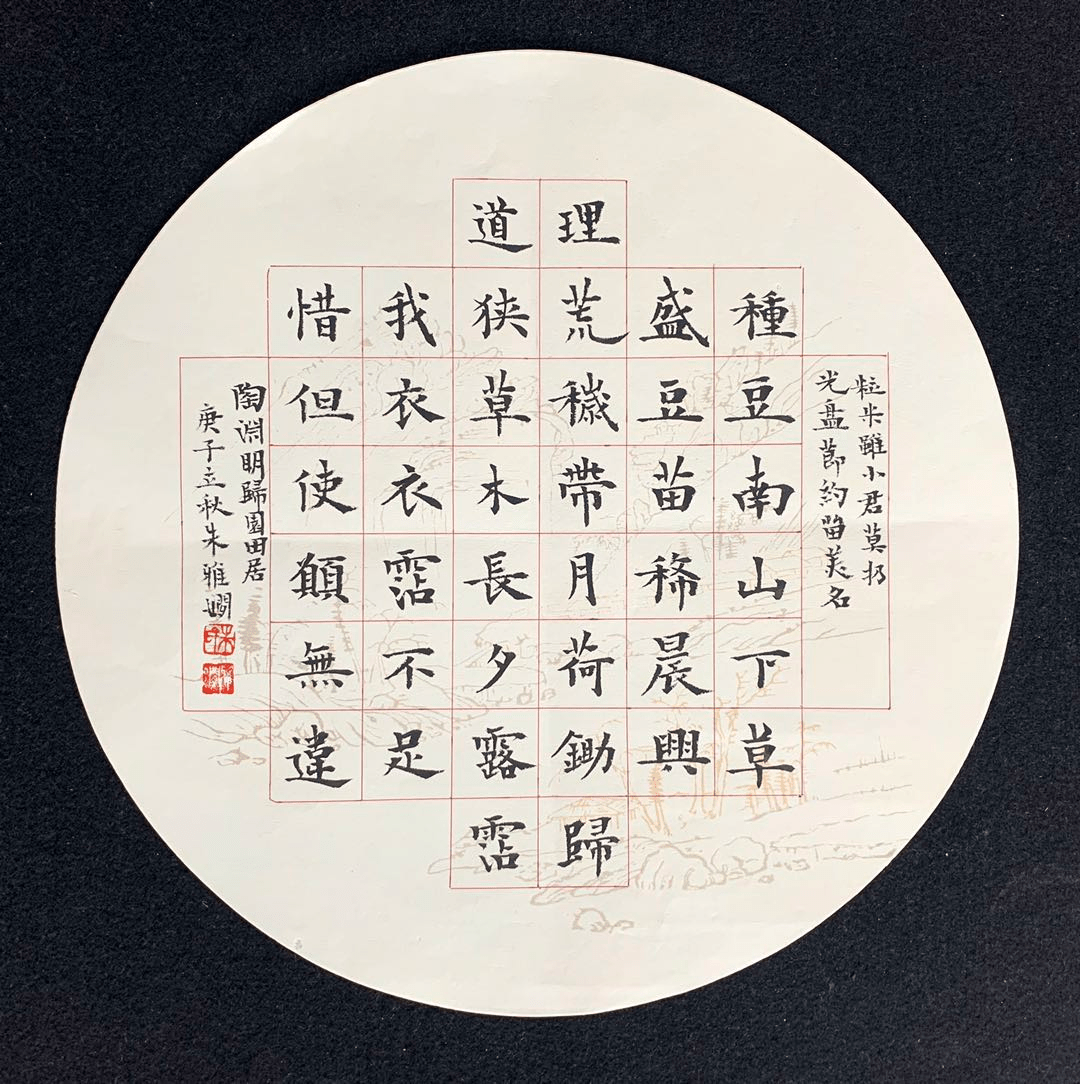 粒米雖小君莫扔
光盘節約留美名
種豆南山下草
盛豆苗稀晨興
理荒穢帶月荷鋤歸
道狭草木長夕露霑
我衣衣霑不足
惜但使願無違
陶淵明歸園田居
庚子立秋朱雅嫺